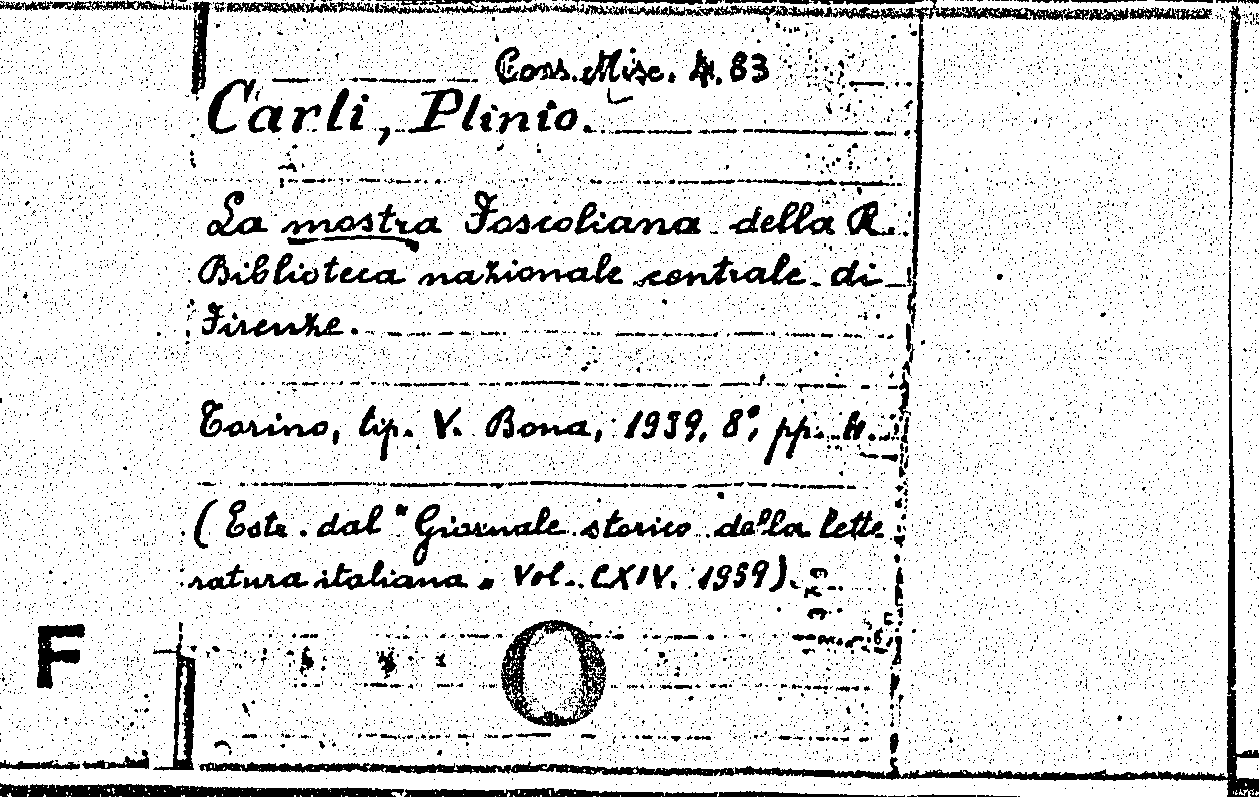 Cons. Misc. 4. 83
Carli, Plinio.
La mostra Foscoliana della R.
Biblioteca nazionale centrale di
Firenze.
Torino, tip. V. Bona, 1939, 8°, pp. 4.
(Estr. dal "Giornale storico della lette
ratura italiana" Vol. CXIV. 1959).
F